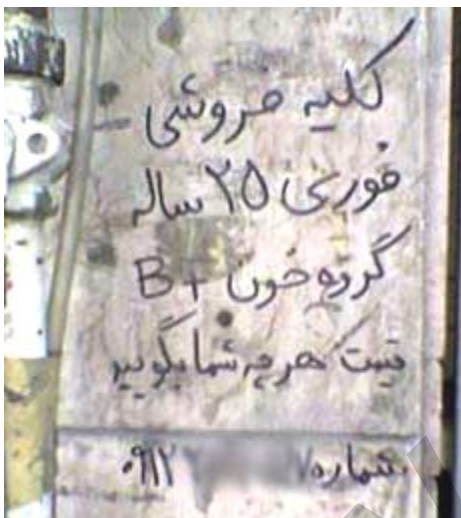 کلیه فروشی
فوری ۲۵ ساله
گروه خون B+
قیمت هر چه شما بگویید
شماره ۰۹۱۲